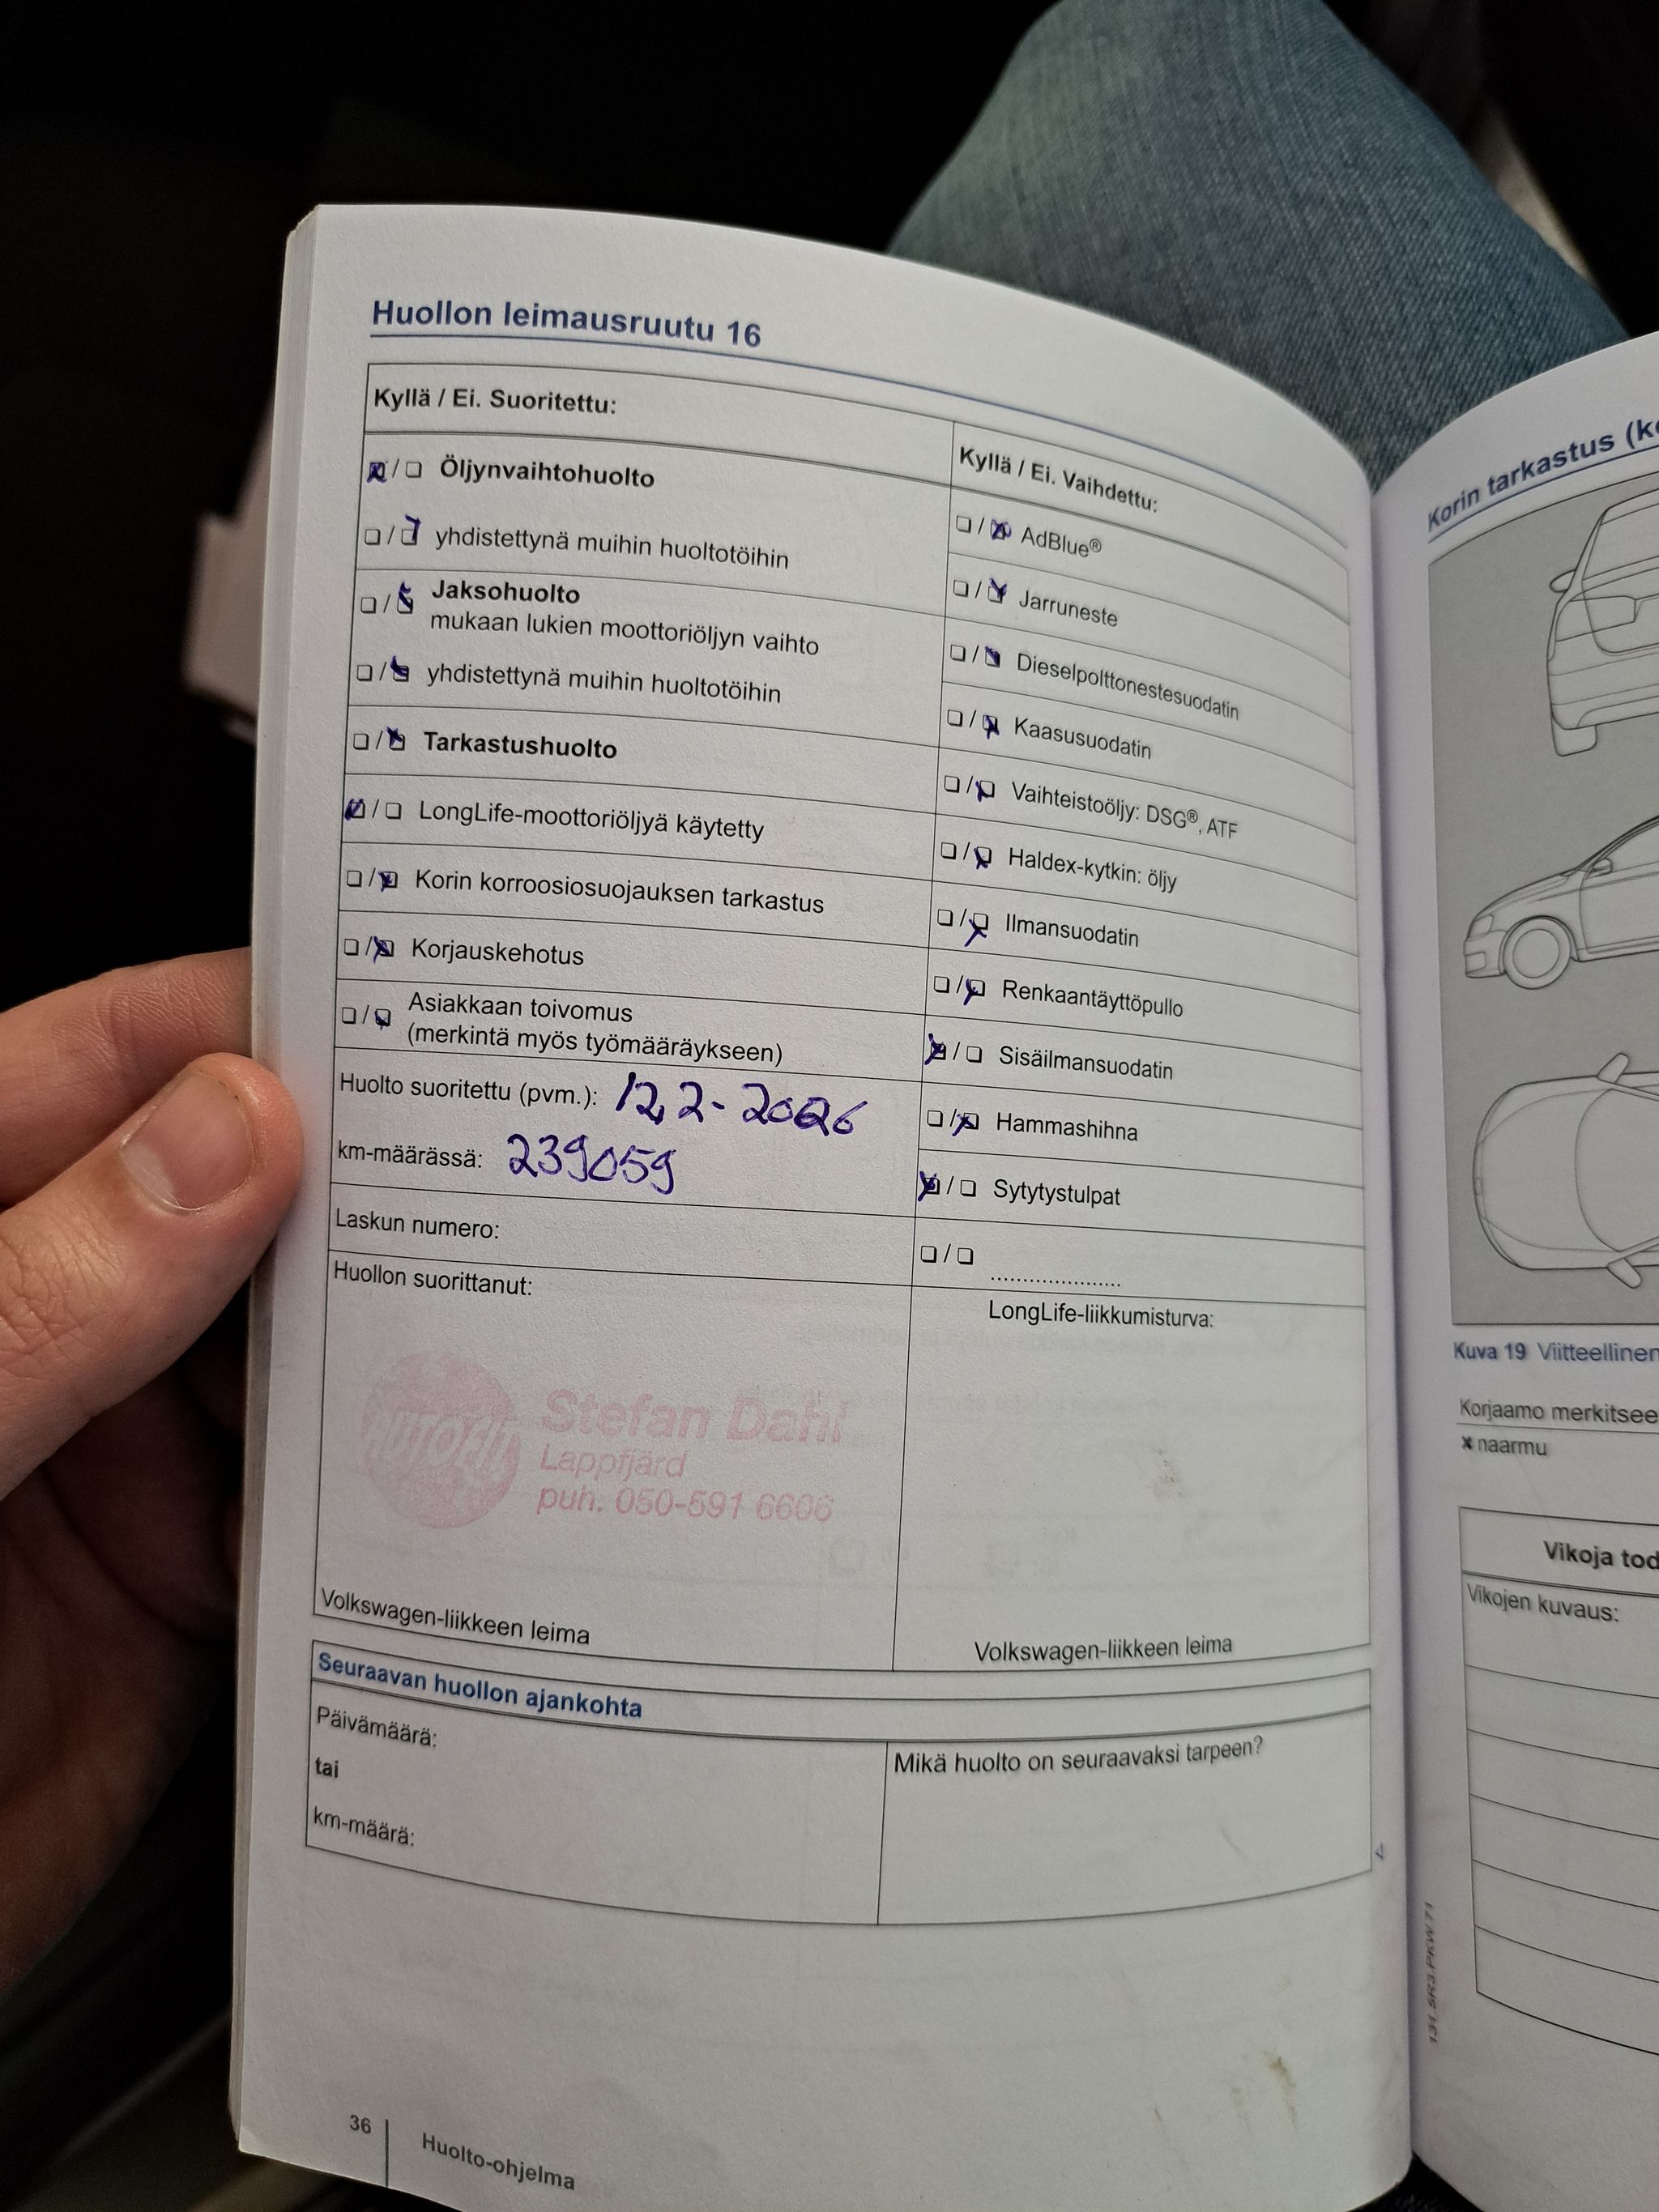 Huollon leimausruutu 16
Kyllä / Ei. Suoritettu:
/ Öljynvaihtohuolto
/ yhdistettynä muihin huoltotöihin
/ Jaksohuolto
mukaan lukien moottoriöljyn vaihto
/ yhdistettynä muihin huoltotöihin
/ Tarkastushuolto
/ LongLife-moottoriöljyä käytetty
/ Korin korroosiosuojauksen tarkastus
/ Korjauskehotus
/ Asiakkaan toivomus
(merkintä myös työmääräykseen)
Huolto suoritettu (pvm.): 12.2-2026
km-määrässä: 239059
Laskun numero:
Huollon suorittanut:
Stefan Dahl
Lappfjärd
puh. 050-591 6606
Volkswagen-liikkeen leima
Kyllä / Ei. Vaihdettu:
/ AdBlue®
/ Jarruneste
/ Dieselpolttonestesuodatin
/ Kaasusuodatin
/ Vaihteistoöljy: DSG®, ATF
/ Haldex-kytkin: öljy
/ Ilmansuodatin
/ Renkaantäyttöpullo
/ Sisäilmansuodatin
/ Hammashihna
/ Sytytystulpat
/ .....................
LongLife-liikkumisturva:
Volkswagen-liikkeen leima
Seuraavan huollon ajankohta
Päivämäärä:
tai
km-määrä:
Mikä huolto on seuraavaksi tarpeen?
36
Huolto-ohjelma
Korin tarkastus
Kuva 19 Viitteellinen
Korjaamo merkitsee
x naarmu
Vikoja
Vikojen kuvaus: